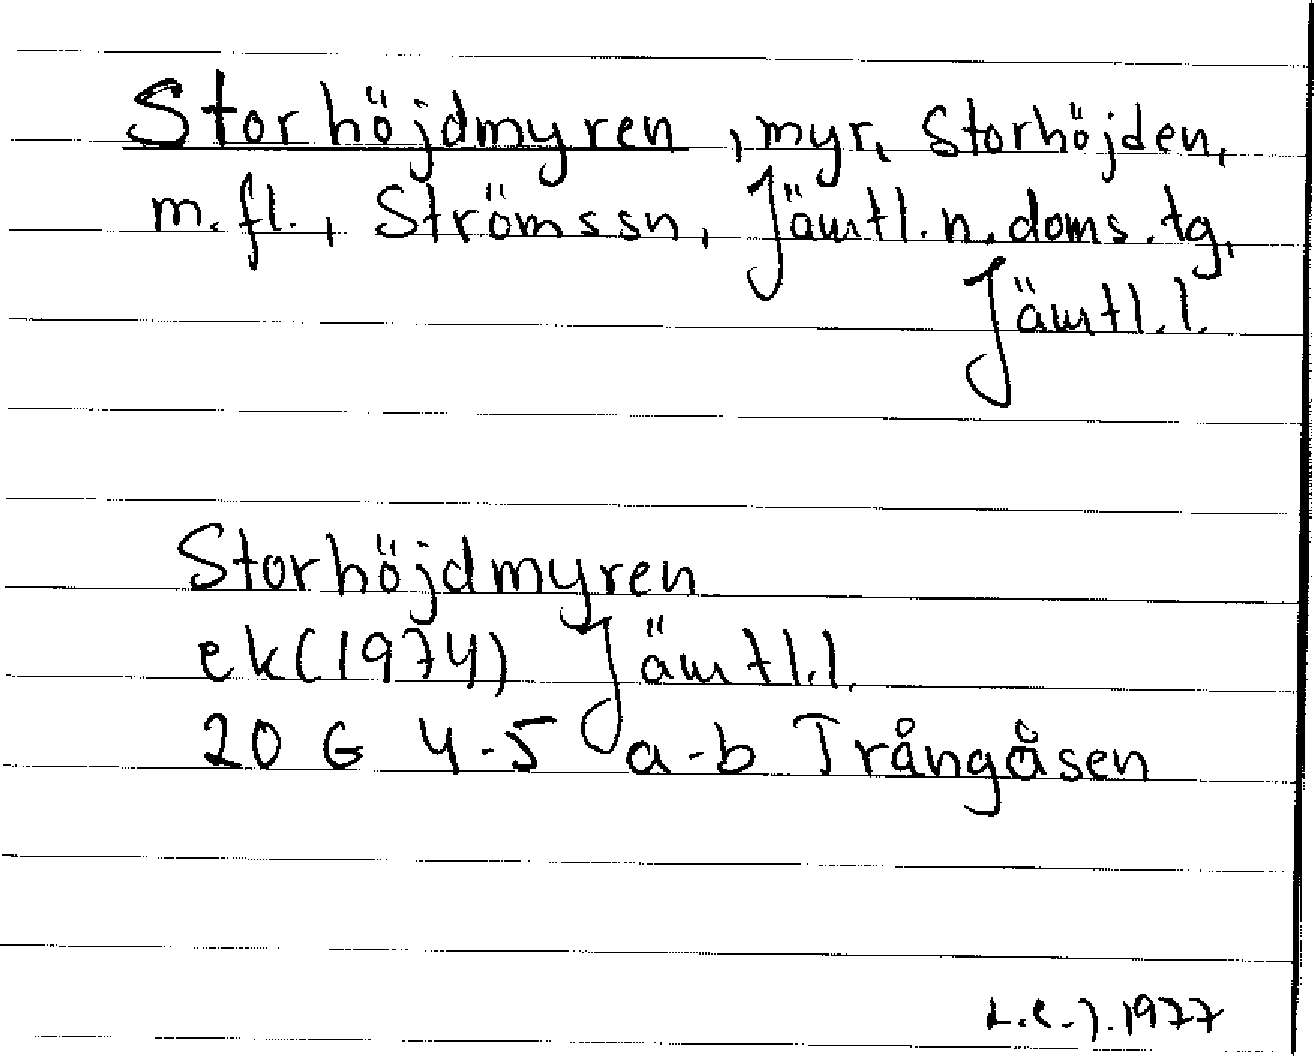 Storhöjdmyren, myr, Storhöjden,
m.fl., Strömssn, Jämtl.n.doms.tg,
Jämtl.l.
Storhöjdmyren
ek(1974) Jämtl.l.
20 G 4-5 a-b Trångåsen
1977